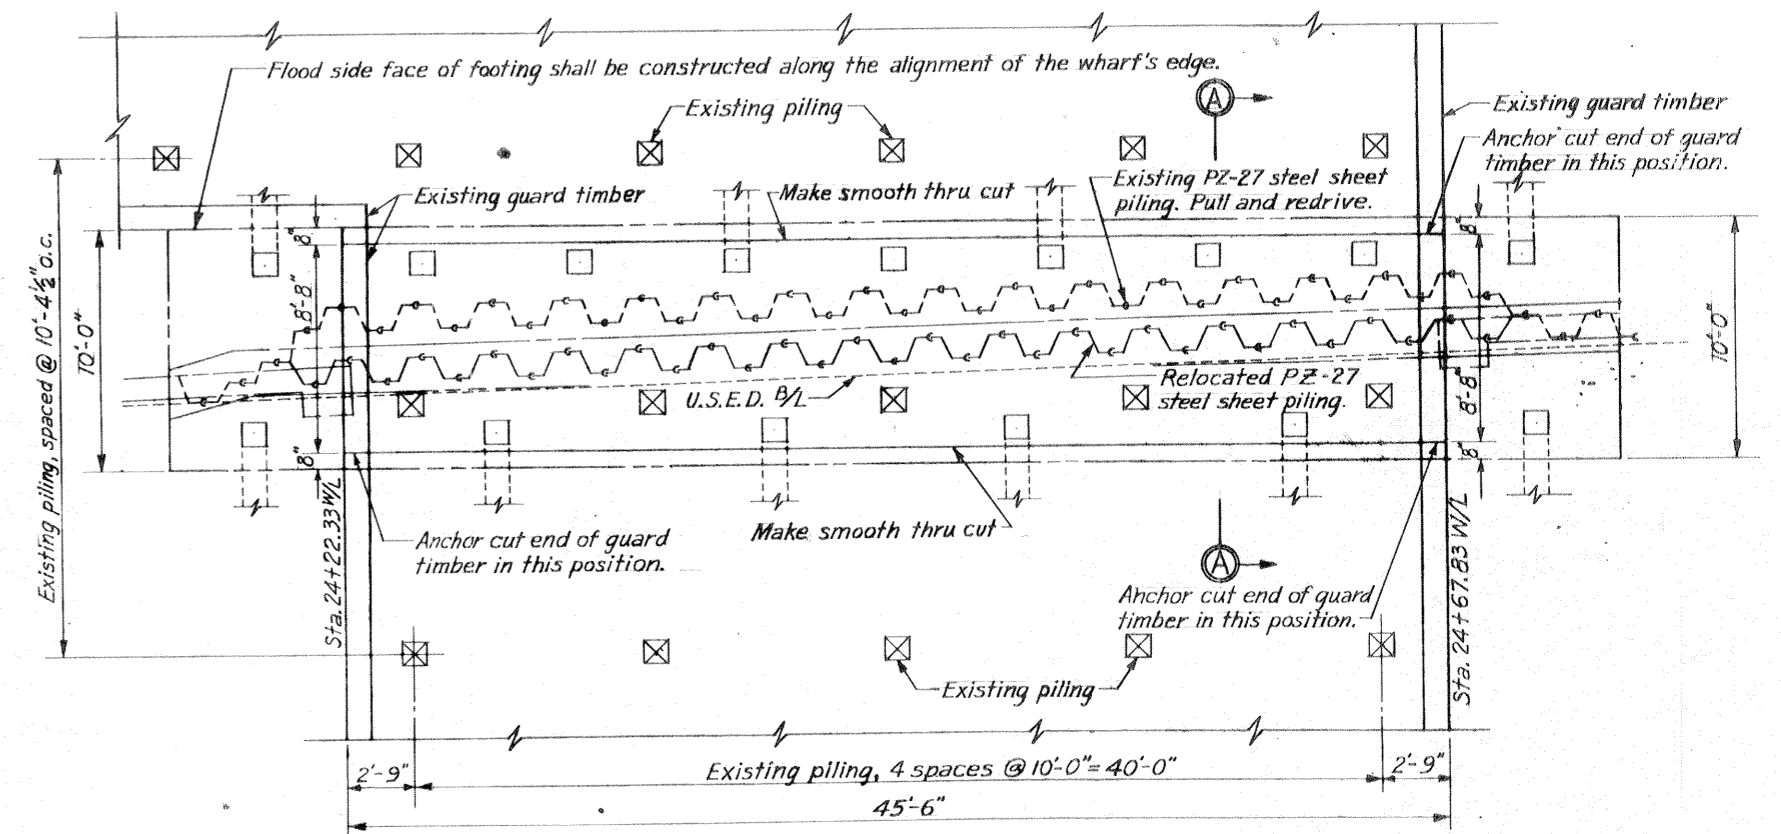 Flood side face of footing shall be constructed along the alignment of the wharf's edge.
Existing piling
A
Existing guard timber
Anchor cut end of guard
timber in this position.
Existing guard timber
Make smooth thru cut
Existing PZ-27 steel sheet
piling. Pull and redrive.
8"
8'-8"
8"
10'-0"
Existing piling, spaced @ 10'-4½" o.c.
8"
8'-8"
8"
10'-0"
U.S.E.D. B/L
Relocated PZ-27
steel sheet piling.
Sta. 24+22.33 W/L
Anchor cut end of guard
timber in this position.
Make smooth thru cut
A
Anchor cut end of guard
timber in this position.
Sta. 24+67.83 W/L
Existing piling
2'-9"
Existing piling, 4 spaces @ 10'-0"= 40'-0"
2'-9"
45'-6"